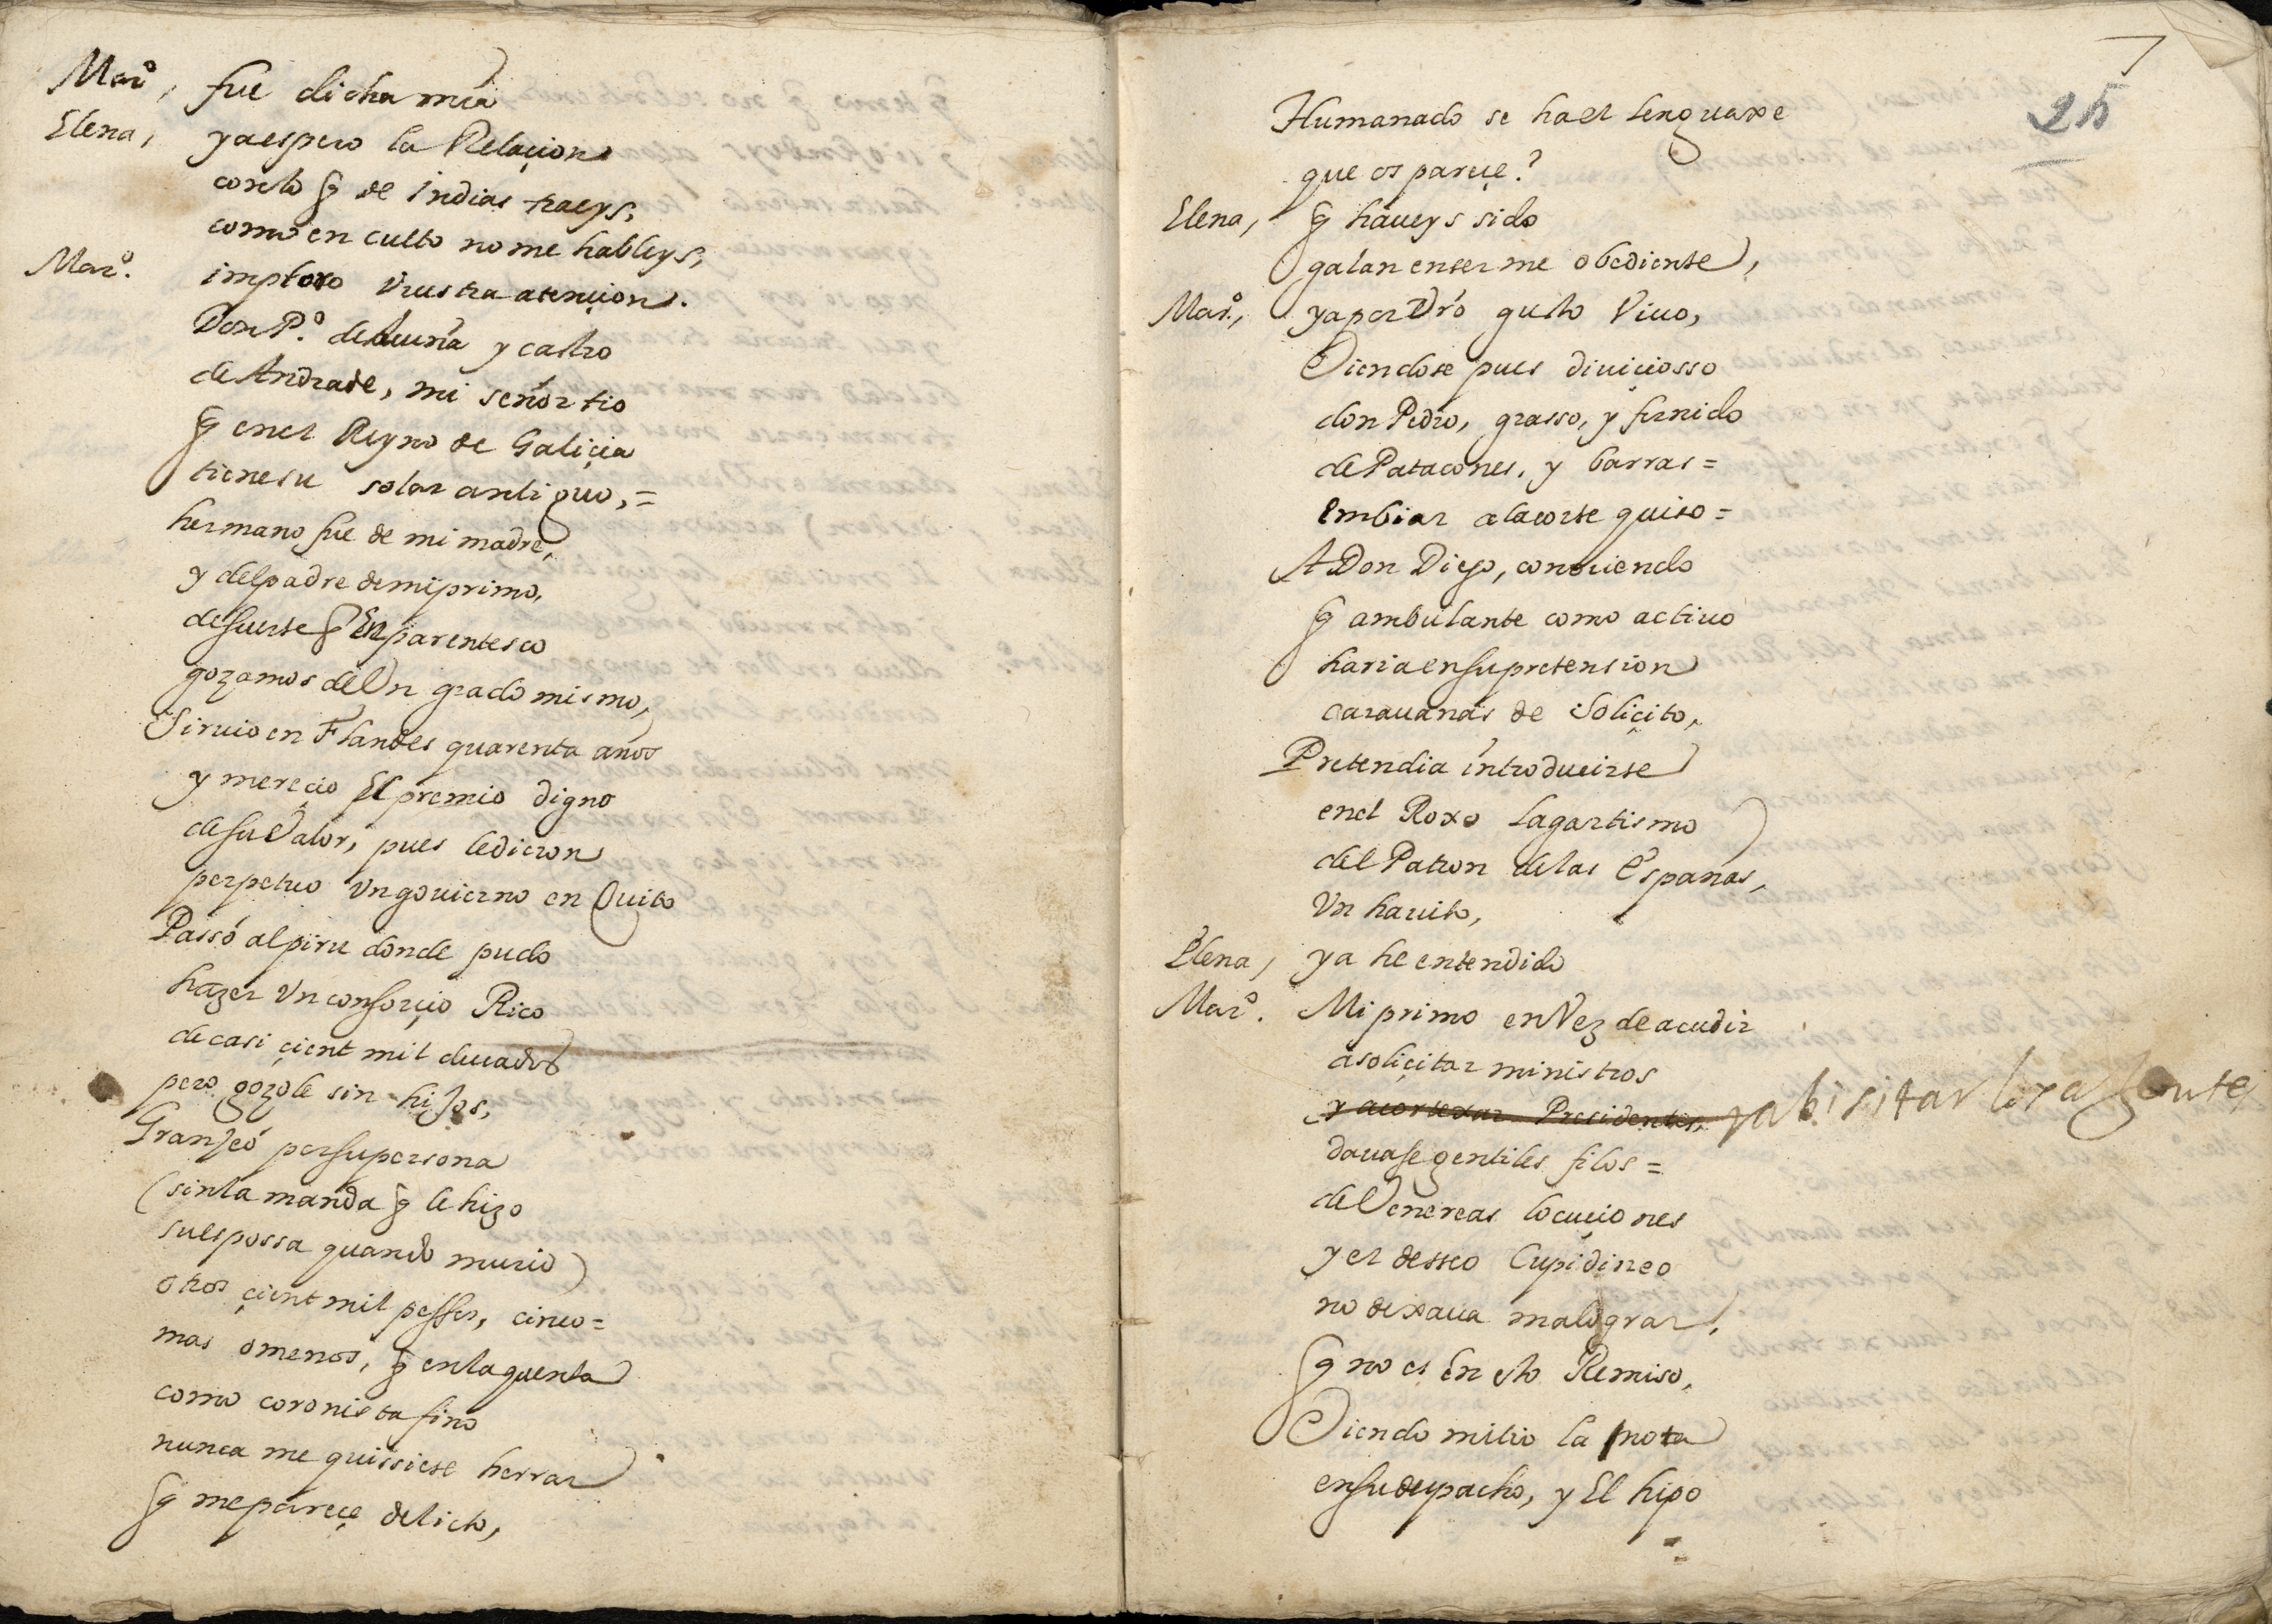 Marº, fue dicha mia
Elena, ya espero la Relaçion
con lo q̃ de indias traeys,
como en culto no me hableys,
Marº. imploro vuestra atençion.
Don Pº. de Acuña y castro
de Andrade, mi señor tio
q̃ en el Reyno de Galiçia
tiene su solar antiguo, =
hermano fue de mi madre,
y del padre de mi primo,
de suerte q̃ En parentesco
gozamos de Vn grado mismo,
Siruio en Flandes quarenta años
y mereçio El premio digno
de su Valor, pues le dieron
perpetuo Vn gouierno en Quito
Passó al piru donde pudo
hazer Vn consorçio Rico
de casi çient mil ducados
pero gozole sin hijos,
Granjeó por su persona
(sin la manda q̃ le hizo
su espossa quando murio)
otros çient mil pessos, cinco =
mas o menos, q̃ en la quenta
como coronista fino
nunca me quissiese herrar
q̃ me pareçe delicto,
25
Humanado se ha el lenguaxe
que os pareçe?
Elena, q̃ haueys sido
galan en ser me obediente,
Marº., ya por Vrō gusto Viuo,
Viendose pues diuiçiosso
don Pedro, grasso, y fornido
de Patacones, y barras =
embiar a la corte quiso =
A Don Diego, conociendo
q̃ ambulante como actiuo
haria en su pretension
carauanas de Soliçito,
Pretendia introducirse
en el Roxo Lagartismo
del Patron de las españas,
Vn hauito,
Elena, ya he entendido
Marº. Mi primo en Vez de acudir
a soliçitar ministros
y a cortexar Presidentes, y a bisitar los
dauase gentiles filos =
de Venereas locuçiones
y el desseo Cupidineo
no dexaua malograr,
q̃ no es En esto Remiso,
Viendo mi tio la mota
en su despacho, y El hipo